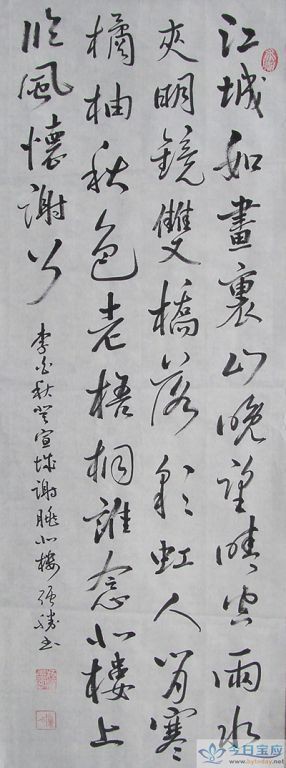 江城如畫裏山晚望晴空兩水
夾明鏡雙橋落彩虹人烟寒
橘柚秋色老梧桐誰念北樓上
臨風懷謝公
李白秋登宣城謝朓北樓 书
今日宝应
www.bytoday.net